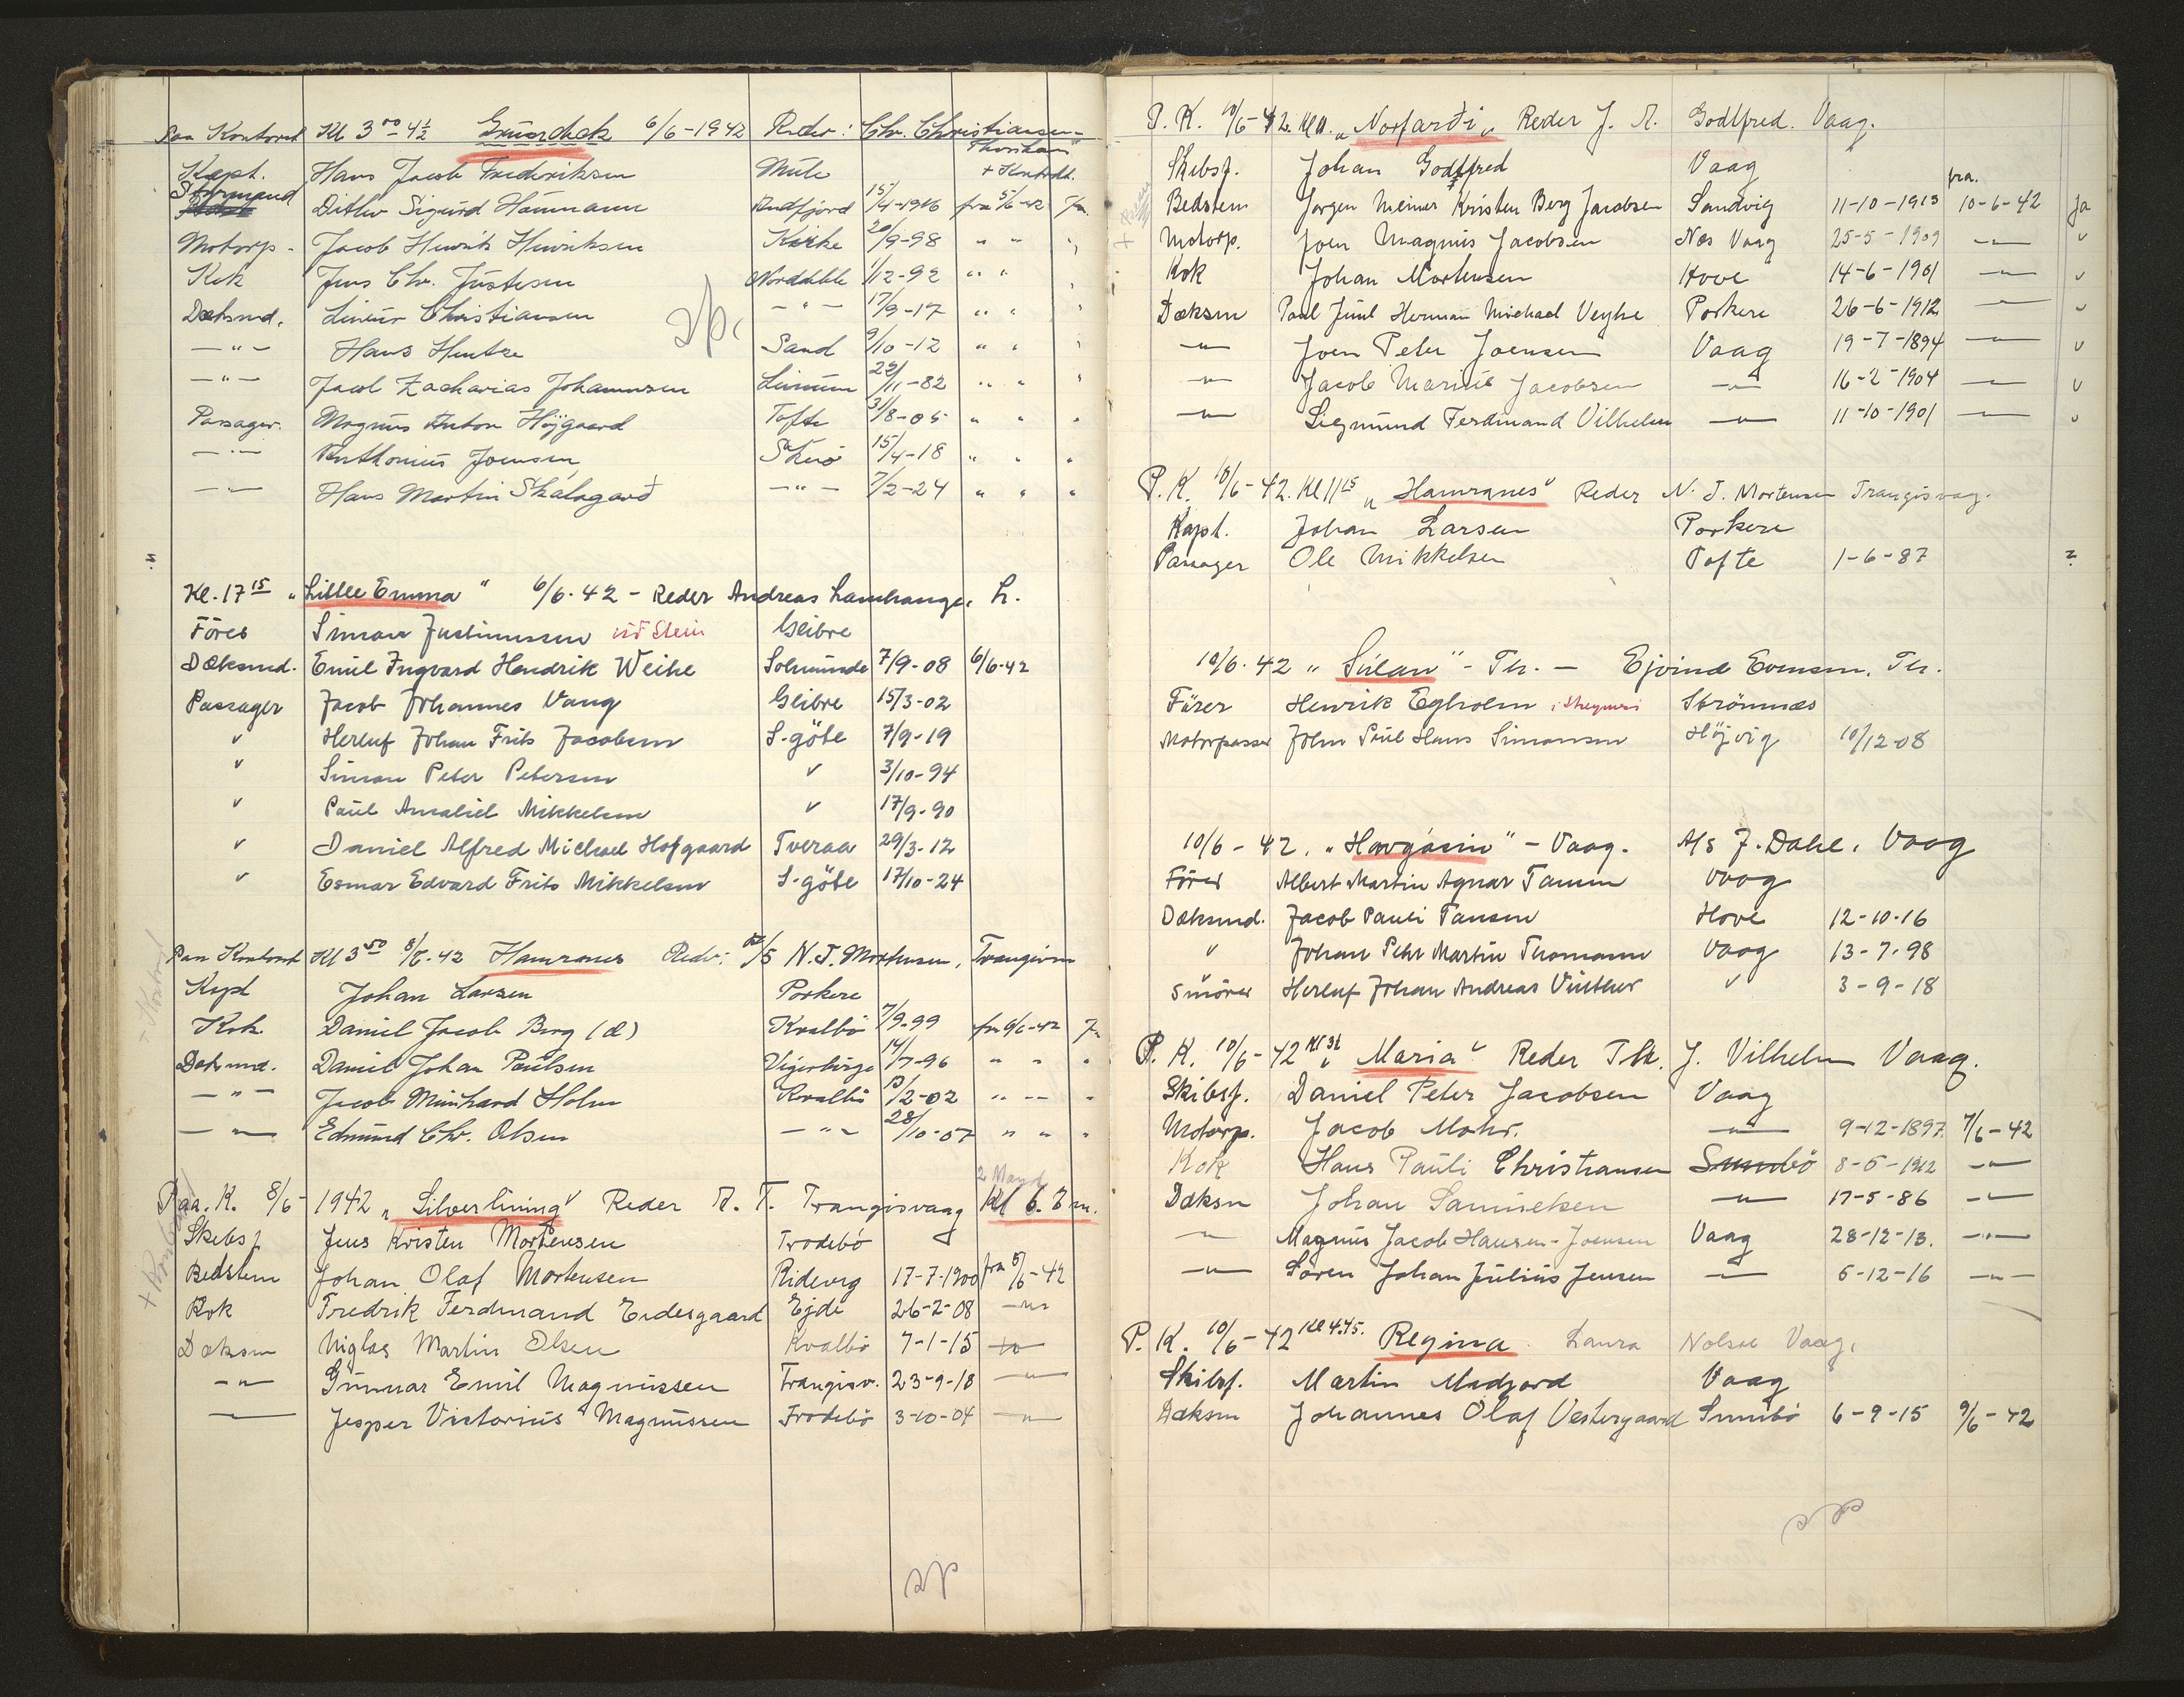 Paa Kontoret Kl 3⁰⁰-4½ 6/6-1942 Reder: Chr. Christiansen
Thorshavn
Kapt. Hans Jacob Frederiksen Mule + Kontrolt.
Styrmand Ditlev Sigurd Hammann Andfjord 15/4-1916 fra 5/6-42 Ja
Motorp. Jacob Henrik Henriksen Kirke 20/9-98 " "
Kok Jens Chr. Justesen Norddeble 1/12-92 " "
Dæksmd. Christiansen -"- 17/9-17 " "
-"- Hans Hentze Sand 9/10-12 " "
-"- Jacob Zacharias Johannesen 22/11-82 " "
Passager. Magnus Anton Höjgaard Tofte 31/8-05 " "
-"- Anthonius Joensen Skuø 15/4-18 " "
-"- Hans Martin Skálagarð -"- 7/2-24 " "
Kl. 17¹⁵ „Lille Emma" 6/6-42 - Reder Andreas Lamhauge, L.
Förer Simon Justinussen við Stein Glibre
Dæksmd. Emil Ingvard Hendrik Weihe Solmunde 7/9-08 6/6-42
Passager Jacob Johannes Vang Glibre 15/3-02
v Herluf Johan Frits Jacobsen S-göte 7/9-19
v Simon Peter Petersen v 3/10-94
v Paul Amaliel Mikkelsen v 17/9-90
v Daniel Alfred Michael Hofgaard Tveraa 29/3-12
v Esmar Edvard Frits Mikkelsen S-göte 17/10-24
Paa Kontoret Kl 3⁵⁰ 8/6-42 Hamranes Reder: A/S N.J. Mortensen, Trangisv
Kapt Johan Larsen Porkere
Kok Daniel Jacob Berg (d) Kvalbö 7/9-99 fra 6/6-42 Ja
Dæksmd. Daniel Johan Poulsen 14/7-96 " "
-"- Jacob Meinhard Holm Kvalbö 13/2-02 " --
-"- Edmund Chr. Olsen -"- 28/10-07 " "
2 Mand
Paa. K. 8/6- 1942 „Silverlining" Reder A. T. Trangisvaag Kl 6. Em.
Skibsf Jens Kristen Mortensen Frodebö
Bedstem Johan Olaf Mortensen Ridevig 17-7-1900 fra 5/6-42
Kok Fredrik Ferdinand Eidesgaard Ejde 26-2-08 -"-
Dæksm Niglas Martin Olsen Kvalbö 7-1-15
-"- Gunnar Emil Magnussen Trangisv. 23-9-18 -"-
-"- Jesper Victorius Magnussen Frodebö 3-10-04 -"-
P. K. 10/6-42. Kl 11. „Norfarði" Reder J. A. Godtfred. Vaag.
Skibsf. Johan Godtfred Vaag
fra.
Bedstem Jørgen Meiner Kristen Berg Jacobsen Sandvig 11-10-1913 10-6-42 Ja
Motorp. Joen Magnus Jacobsen Nes Vaag 25-5-1909 -"- v
Kok Johan Mortensen Hove 14-6-1901 -"- v
Dæksm Poul Juul Herman Michael Veyhe Porkere 26-6-1912 -"- v
-"- Joen Peter Joensen Vaag 19-7-1894 -"- v
-"- Jacob Marius Jacobsen -"- 16-2-1904 -"- v
-"- Siegmund Ferdinand Vilhelm -"- 11-10-1901 -"- v
P. K. 10/6-42. Kl 11¹⁵ „Hamranes" Reder N. J. Mortensen Trangisvag.
Kapt. Johan Larsen Porkere
Passager Ole Mikkelsen Tofte 1-6-87 ?
10/6-42 „Súlan" - Th. - Ejvind Evensen, Th.
Fürer Henrik Egholm Strömnæs
Motorpasser John Poul Hans Simonsen Höjvig 10/12-08
10/6-42. „Havgásin" - Vaag. A/s J. Dahl, Vaag
Förer Albert Martin Agnar Tamm Vaag
Dæksmd. Jacob Pauli Tausen Hove 12-10-16
v Johan Peter Martin Thomann Vaag 13-7-98
Smörer Herluf Johan Andreas Vinther v 3-9-18
P. K. 10/6-42 „Maria" Reder Th. J. Vilhelm Vaag.
Skibsf. Daniel Peter Jacobsen Vaag
Motorp. Jacob Mohr. -"- 9-12-1897 7/6-42
Kok Hans Pauli Christiansen Sumbö 8-5-1912 -"-
Dæksm Johan Samuelsen -"- 17-5-86 -"-
-"- Magnus Jacob Hansen-Joensen Vaag 28-12-13. -"-
-"- Søren Johan Julius Jensen -"- 6-12-16 -"-
P. K. 10/6-42 Kl 4.45. Regina Laura Nolsøe Vaag.
Skibsf. Martin Vaag
Dæksm Johannes Olaf Vestergaard Sumbö 6-9-15 9/6-42